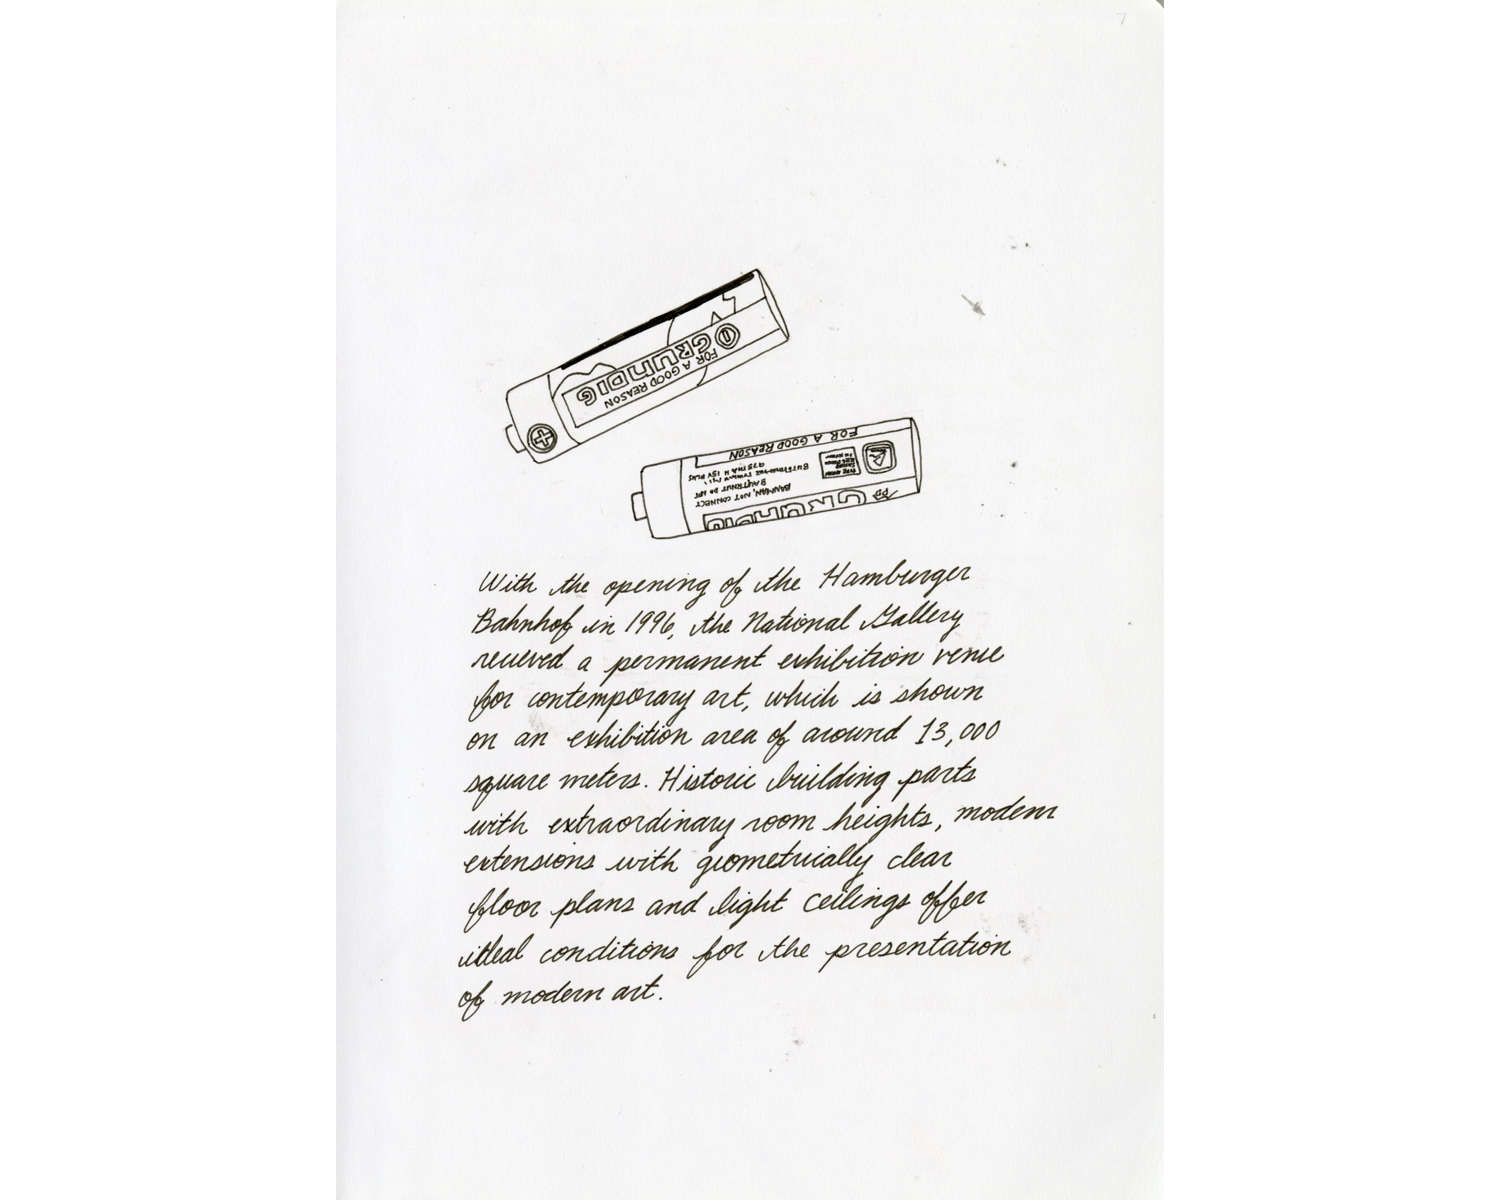 7
GRUNDIG
FOR A GOOD REASON
FOR A GOOD REASON
975 mAH 15V
BATMAN, NOT CONNECT
GRUNDIG
With the opening of the Hamburger
Bahnhof in 1996, the National Gallery
recieved a permanent exhibition venue
for contemporary art, which is shown
on an exhibition area of around 13,000
square meters. Historic building parts
with extraordinary room heights, modern
extensions with geometrically clear
floor plans and light ceilings offer
ideal conditions for the presentation
of modern art.